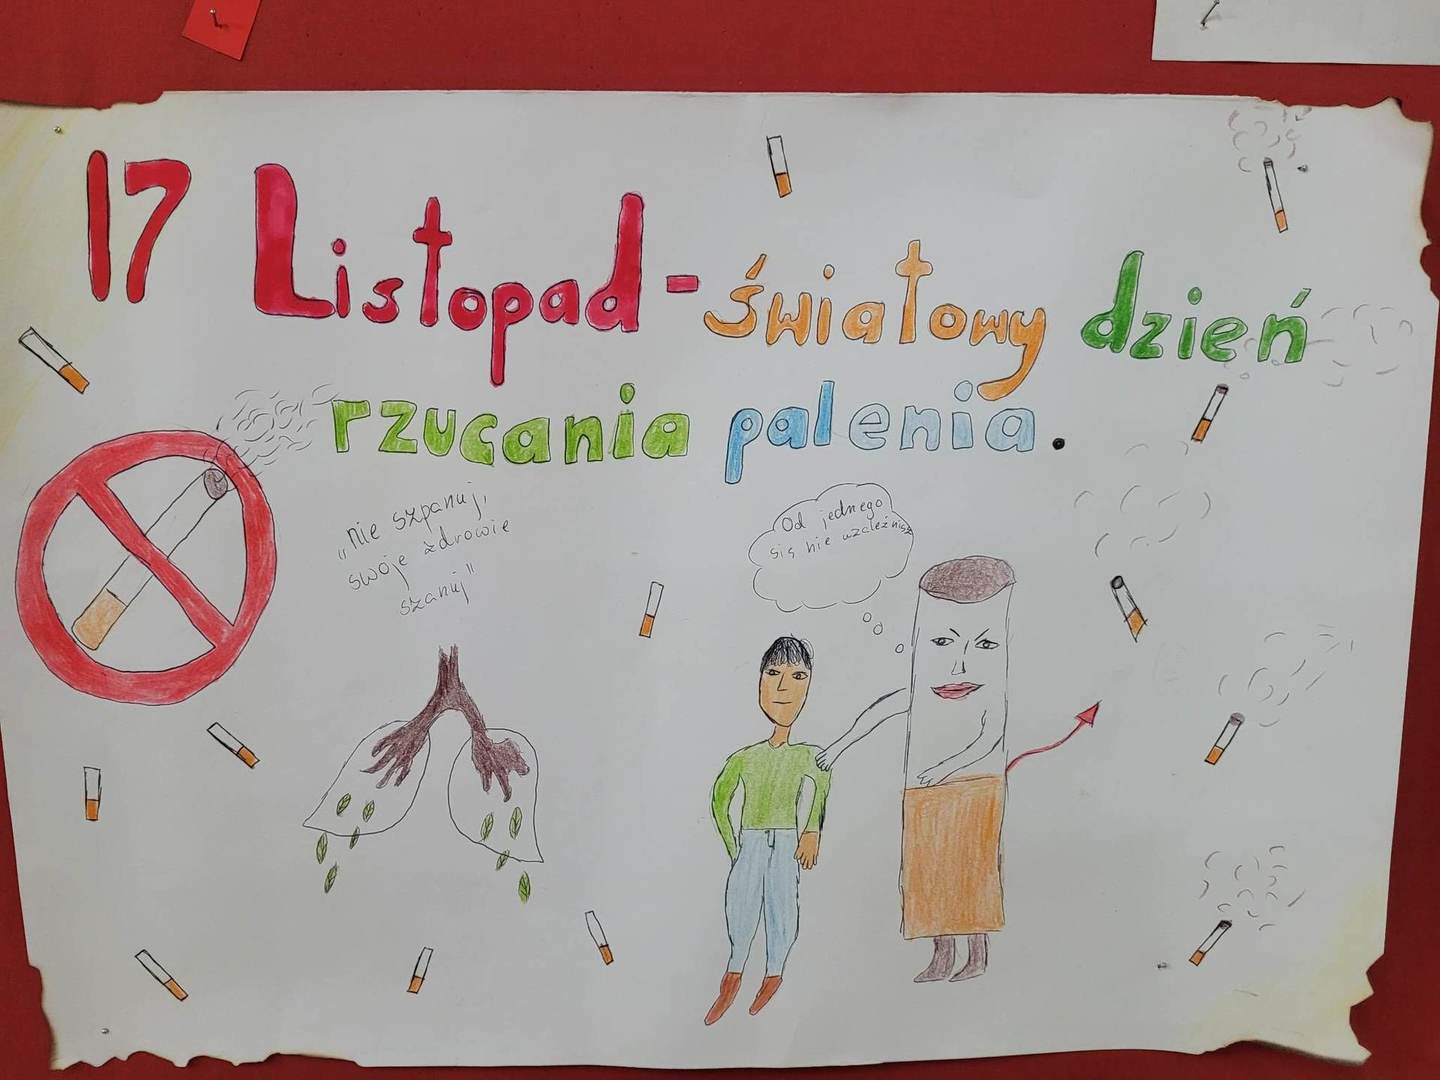 17 Listopad - światowy dzień
rzucania palenia.
„nie szpanuj,
swoje zdrowie
szanuj"
Od jednego
się nie uzależnisz